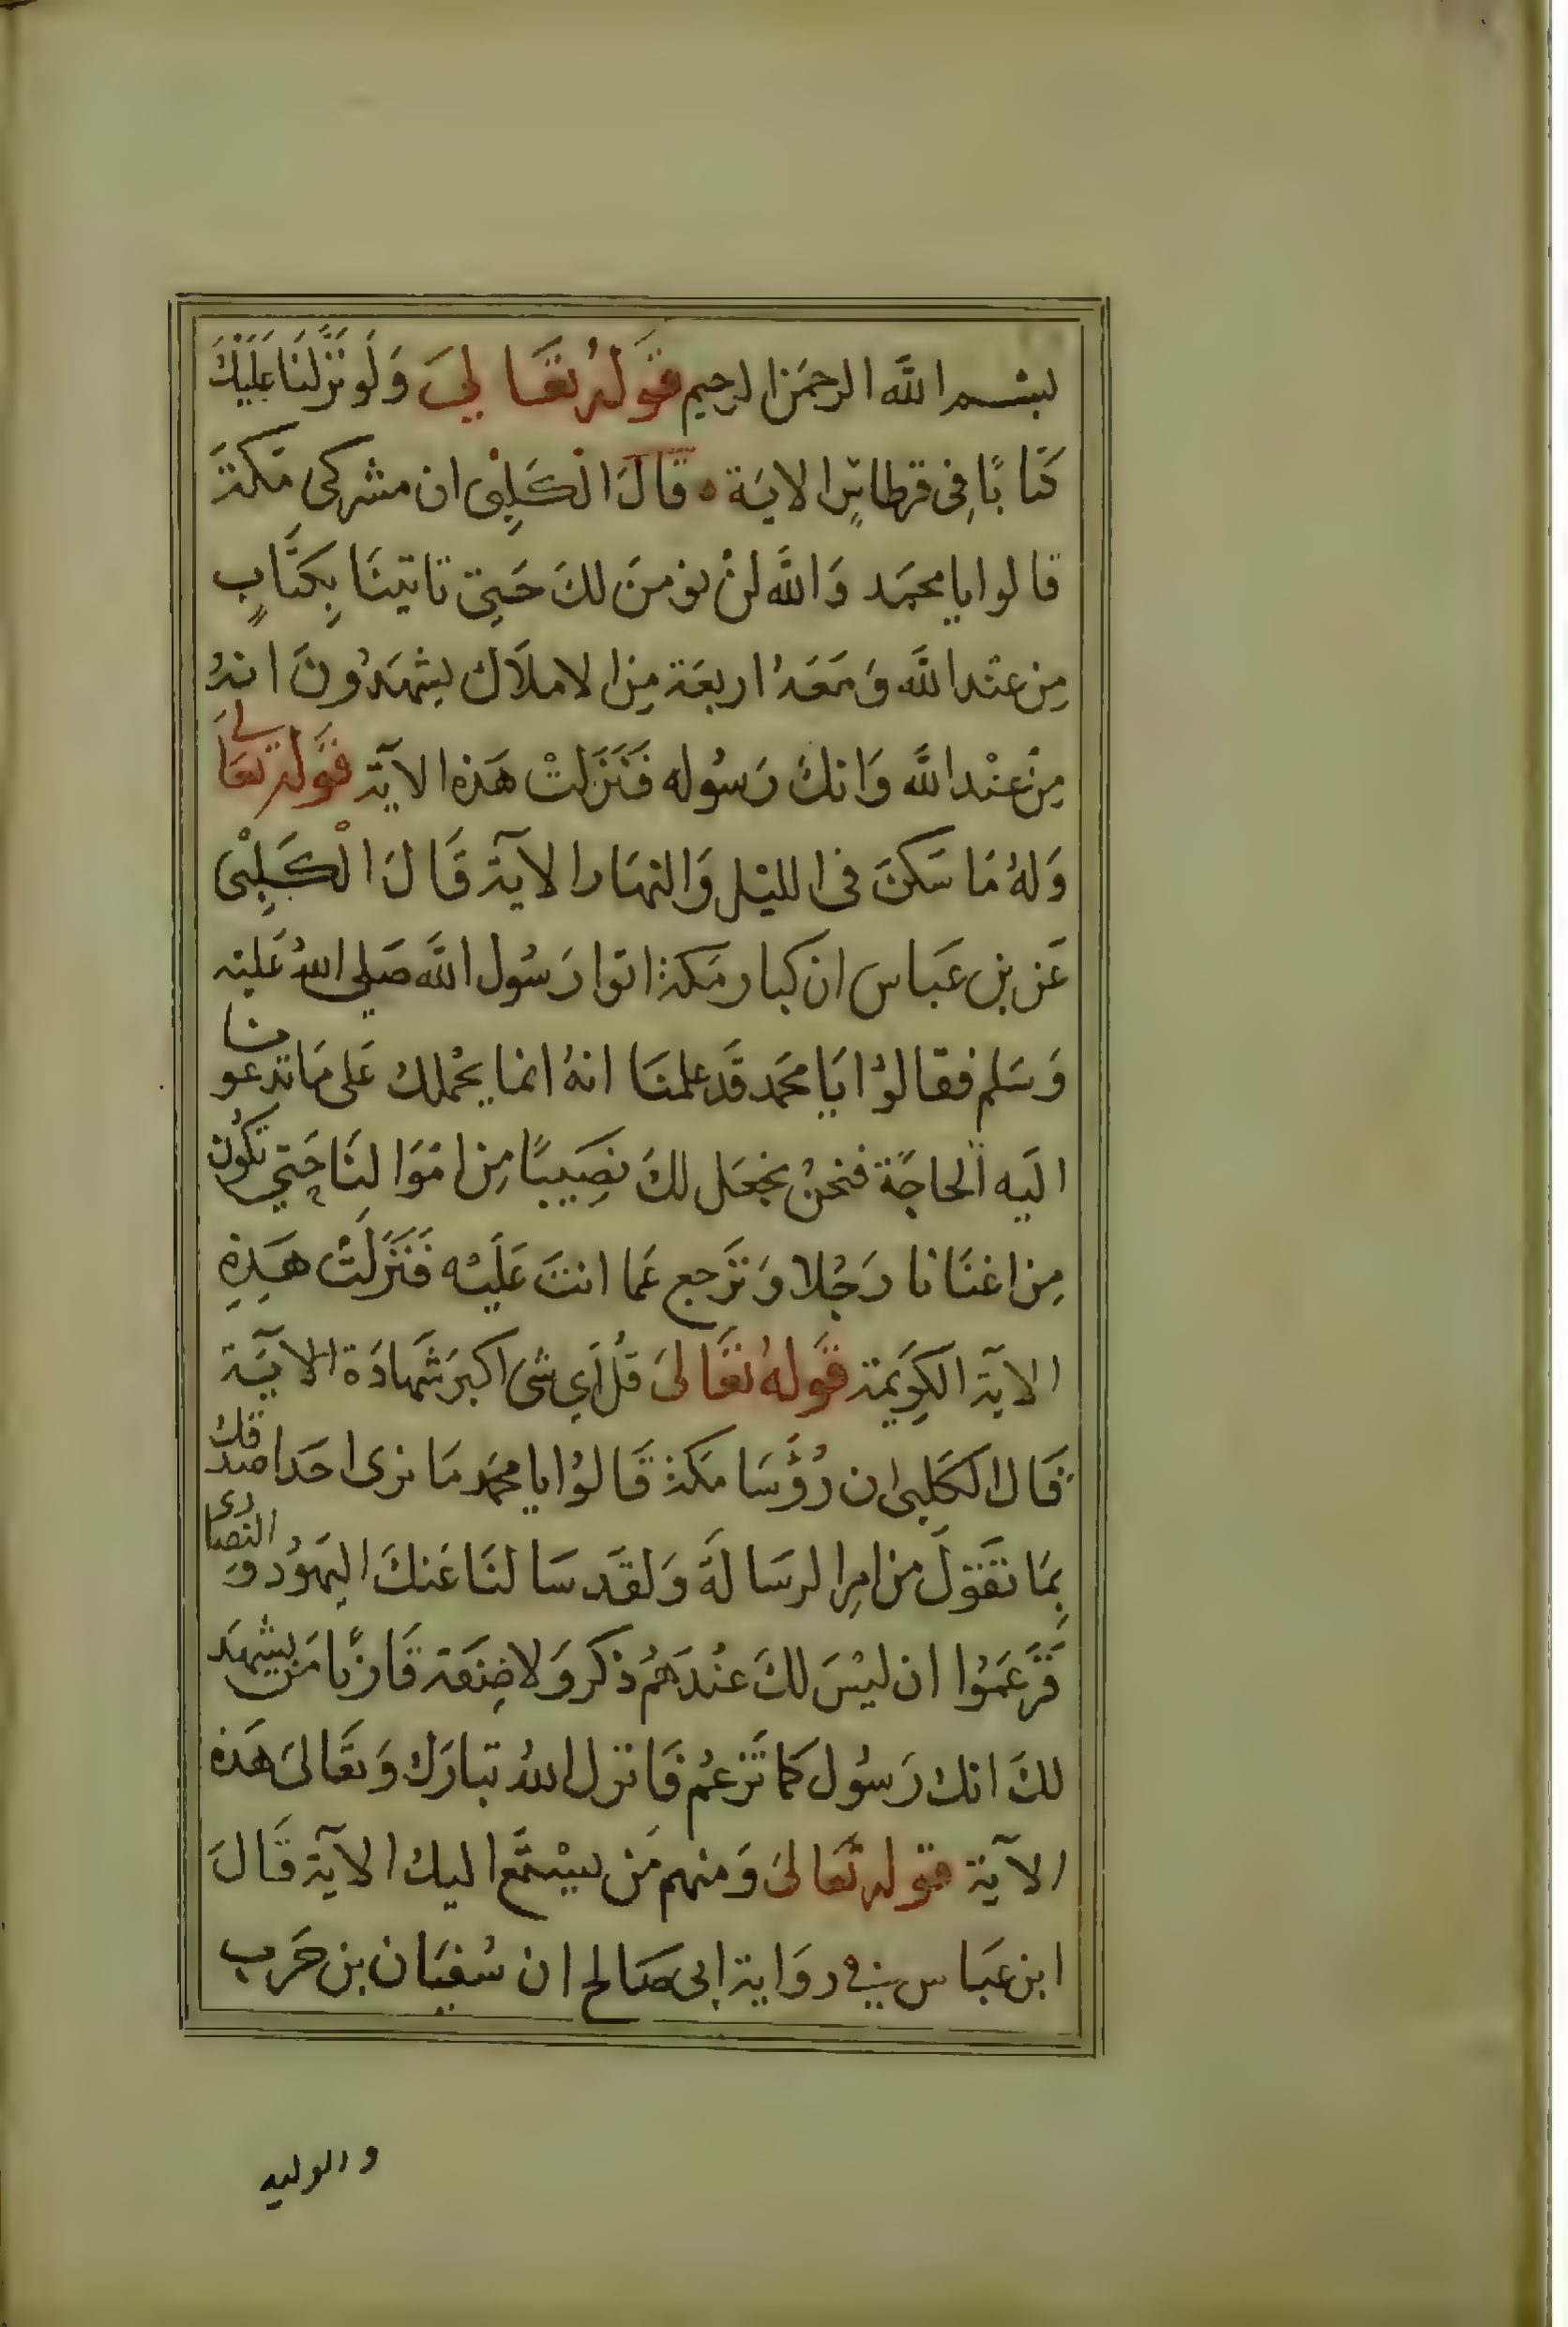 بسم الله الرحمن الرحيم قَولهُ تعَالىَ وَلَو نَزَّلنَا عَلَيْكَ
كتَابًا فِى قرطاسٍ الايَة ه قَالَ الْكَلِبْى ان مشركى مَكة
قالوا يا محمَد وَاللَّه لنْ نؤمنَ لكَ حَتىِ تاتينَا بِكتَابٍ
مِن عنْد اللَّه وَمَعَهُ اربعَة مِن الاملَاك يشهَدُونَ انهُ
مِنْ عنْد اللَّه وَانكَ رَسُوله فَنَزَلتْ هَذه الآية قَوله تعَالي
وَلهُ مَا سَكنَ فى الليْل وَالنهَار الآية قَالَ الْكَلِبْى
عَن بن عَباس ان كبار مَكة اتوا رَسُول اللَّه صَلى اللهُ عَليْه
وَسَلم فقالوُا يَا محَمد قَد علمنَا انهُ انما يحْملك عَلى مَا تدعونا
اليَه الحاجَة فنحنُ نجعَل لكَ نصِيبًا مِن امْوَالنَا حَتي تكُون
مِن اغنَانا رَجُلا وَتَرجع عَما انتَ عَليْه فَنَزَلَتْ هَذِهِ
الاية الكرِيَمة قَولهُ تعَالىَ قُل اَي شى اكبر شَهادَة الآيَة
قَال الكَلبى ان رُؤسَا مَكة قَالوُا يا محَمد مَا نرى احَدا صدقك
بِمَا تقَولَ من امِر الرسَالةَ وَلقَد سَالنَا عَنكَ اليَهوُد وَالنصارى
فَزَعمَوُا ان ليْسَ لكَ عنْدَهُم ذكر وَلا صِنعَة فَارنَا مَن يشهَد
لكَ انك رَسُول كمَا تَزعُم فَانزل اللهُ تبارَك وَتعَالىَ هَذه
الآية قوله تعَالىَ وَمنهم مَن يسْتمَع اليك الآية قَالَ
ابن عَباس في روَاية ابى صَالح ان سُفيَان بن حَرب
والوليد